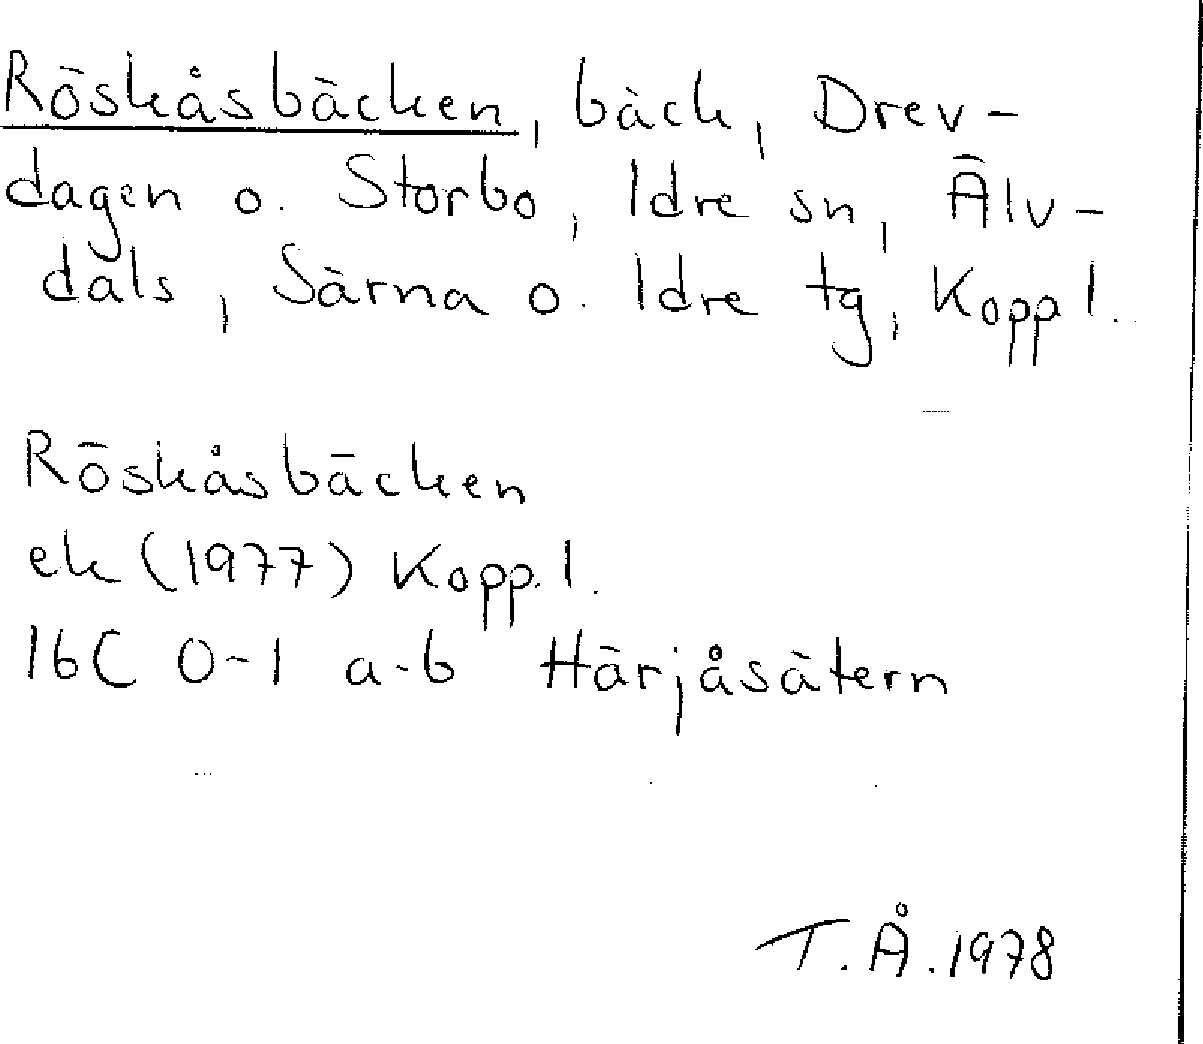 Röskåsbäcken, bäck, Drev-
dagen o. Storbo, Idre sn, Älv-
dals, Särna o. Idre tg, Kopp l.
Röskåsbäcken
ek (1977) Kopp. l.
16C 0-1 a-b Härjåsätern
T.Å.1978